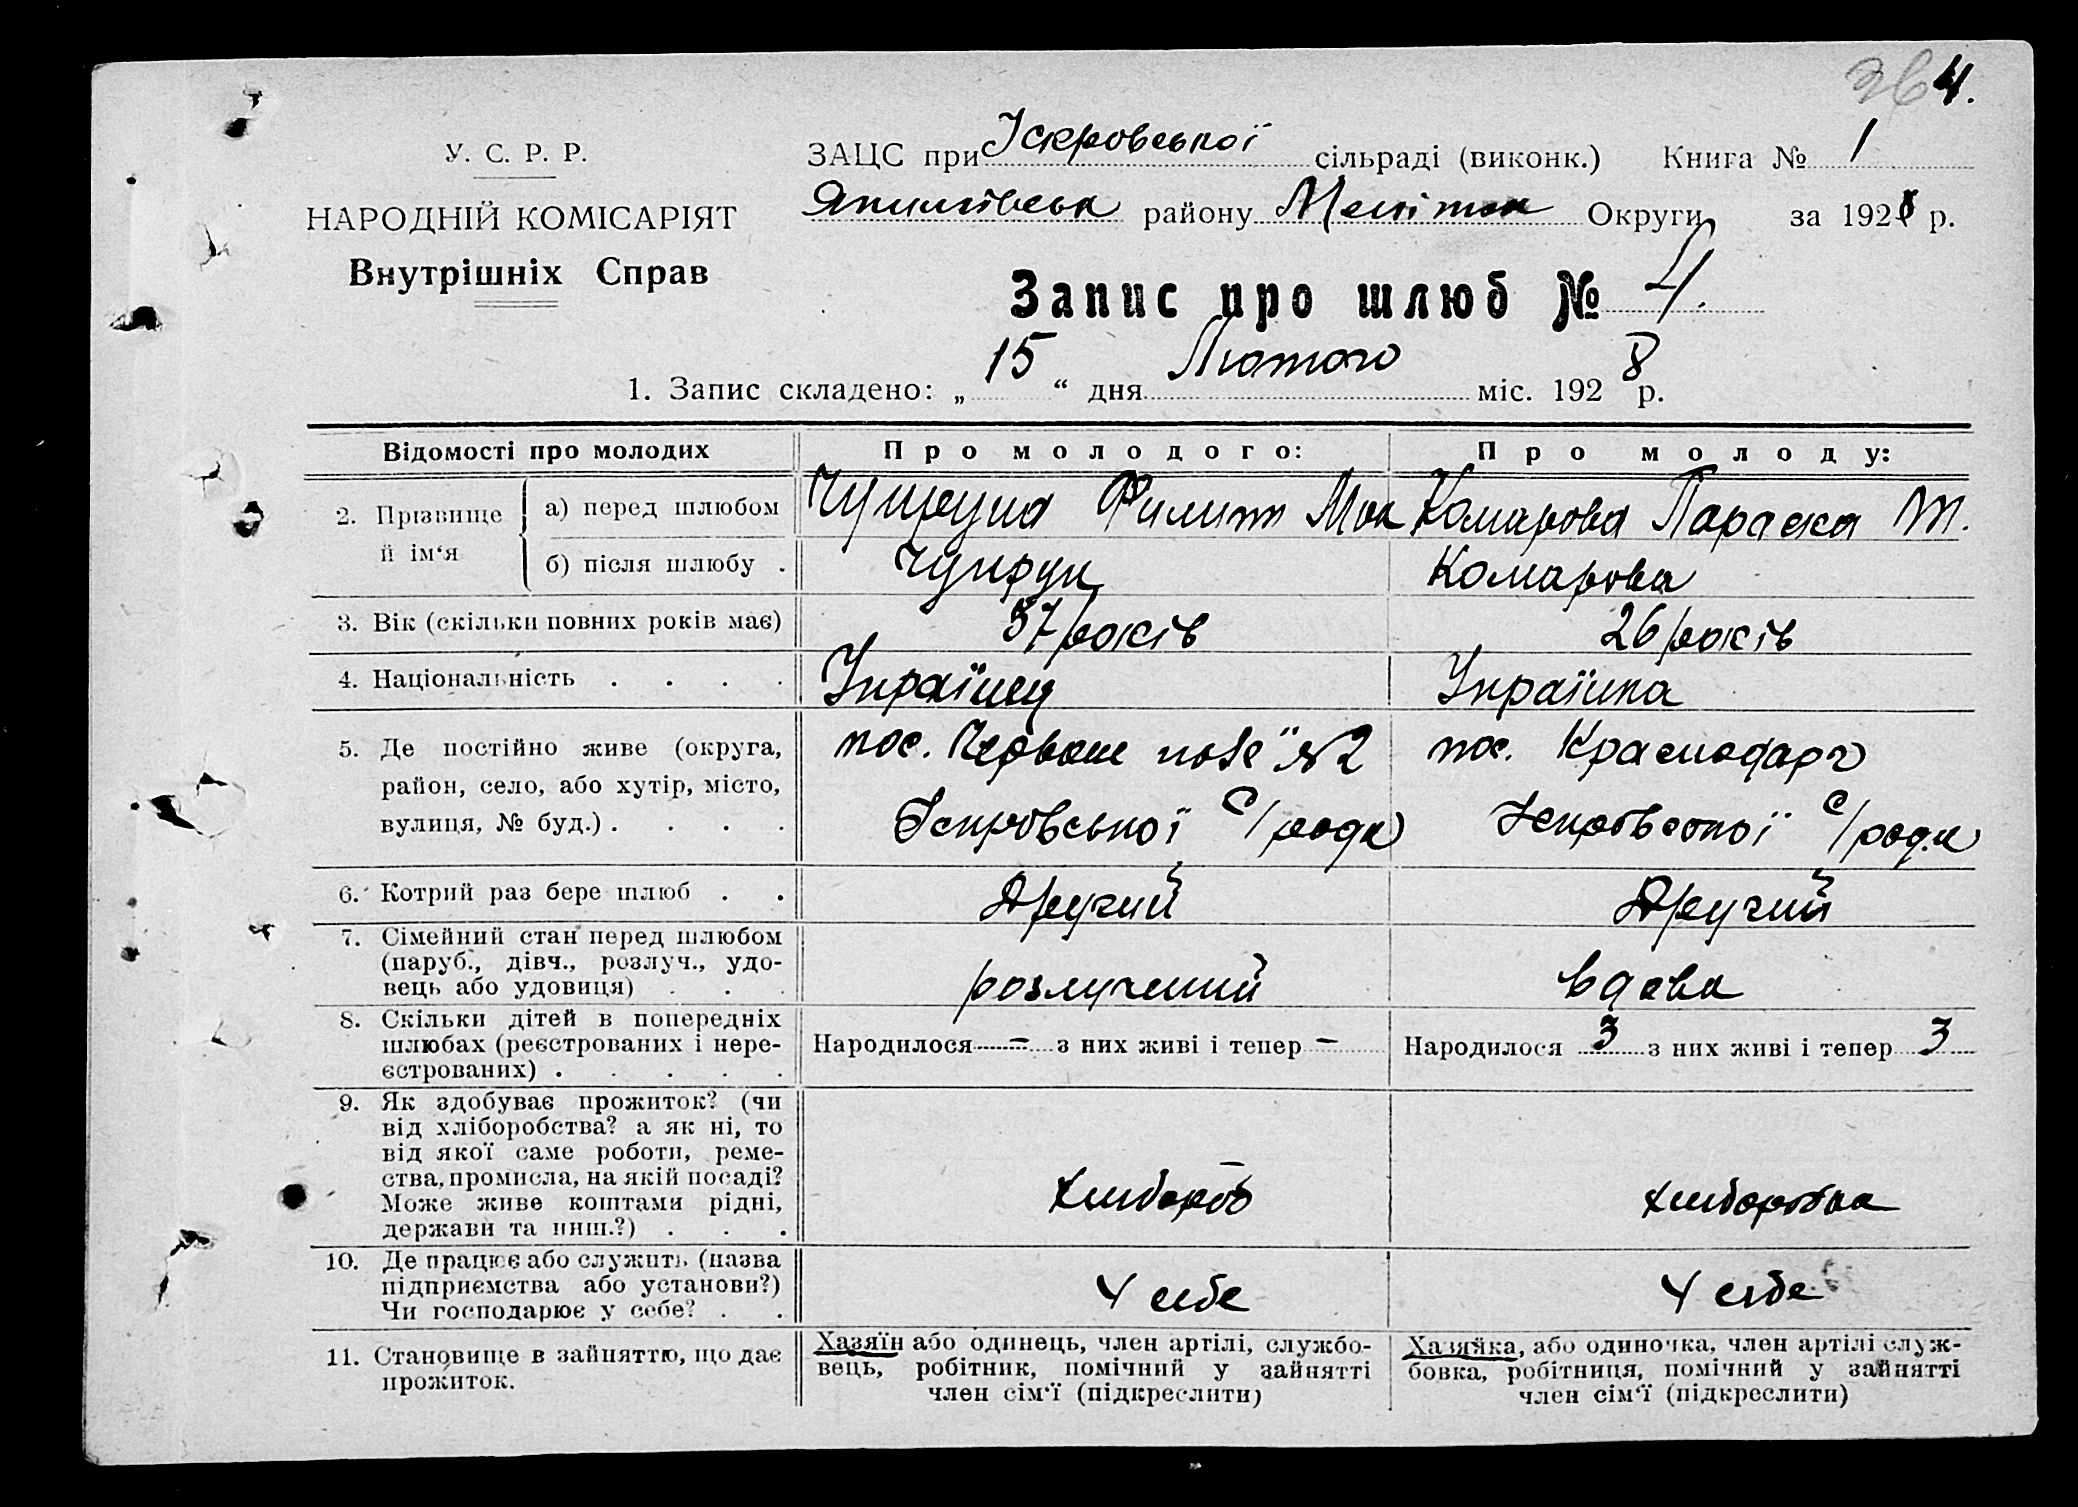 264.
У. С. Р. Р.
НАРОДНІЙ КОМІСАРІЯТ
Внутрішніх Справ
ЗАЦС при Іскровської сільраді (виконк.) Книга № 1
Якимівськ району Меліток Округи за 1928 р.
Запис про шлюб № 4.
1. Запис складено: „15“ дня Лютого міс. 1928 р.
Відомості про молодих Про молодого: Про молоду:
2. Прізвище й ім‘я
а) перед шлюбом Чупруна Филипп Мак Комарова Параска М.
б) після шлюбу . Чупрун Комарова
3. Вік (скільки повних років має) 37 років 26 років
4. Національність . . . . Українец Українка
5. Де постійно живе (округа,
район, село, або хутір, місто,
вулиця, № буд.) . . . .
пос. Червоне поле" №2
Іскровської с/ради
пос. Краснодарк
Іскровської с/ради
6. Котрий раз бере шлюб . . Другий Другий
7. Сімейний стан перед шлюбом
(паруб., дівч., розлуч., удо-
вець або удовиця) . . .
розлучений вдова
8. Скільки дітей в попередніх
шлюбах (реєстрованих і нере-
єстрованих) . . . . .
Народилося – з них живі і тепер –
Народилося 3 з них живі і тепер 3
9. Як здобуває прожиток? (чи
від хліборобства? а як ні, то
від якої саме роботи, реме-
ства, промисла, на якій посаді?
Може живе коштами рідні,
держави та инш.?) . . .
хлибороб хлиборобка
10. Де працює або служить (назва
підприємства або установи?)
Чи господарює у себе? . .
У себе У себе
11. Становище в зайняттю, що дає
прожиток.
Хазяїн або одинець, член артілі, службо-
вець, робітник, помічний у зайнятті
член сім‘ї (підкреслити)
Хазяйка, або одиночка, член артілі служ-
бовка, робітниця, помічний у зайнятті
член сім‘ї (підкреслити)